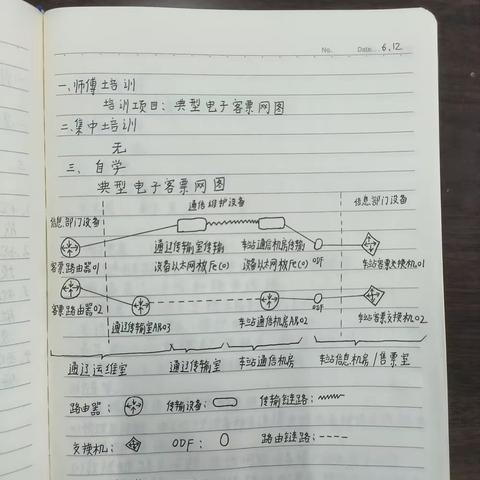 No.
Date. 6.12
一、师傅培训
培训项目：典型电子客票网图
二、集中培训
无
三、自学
典型电子客票网图
信息部门设备
通信维护设备
信息部门设备
客票路由器01
通辽传输室传输
设备以太网板Fe(0)
车站通信机房传输
设备以太网板Fe(0)
ODF
车站客票交换机01
客票路由器02
通辽传输室AR03
车站通信机房AR02
ODF
车站客票交换机02
通辽运维室
通辽传输室
车站通信机房
车站信息机房/售票室
路由器：
传输设备：
传输链路：
交换机：
ODF：
路由链路：